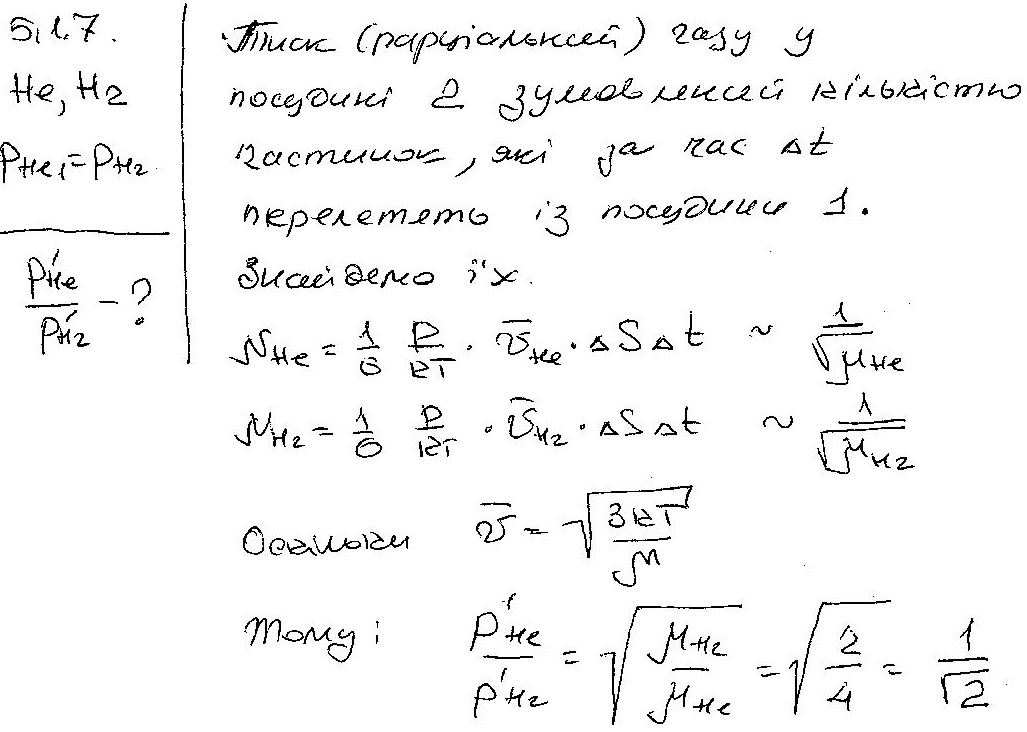 5.1.7.
He, H2
P_He1 = P_H2
P'_He / P'_H2 - ?
Тиск (парціальний) газу у
посудині 2 зумовлений кількістю
частинок, які за час Δt
перелетять із посудини 1.
Знайдемо їх.
N_He = 1/6 P/kT · v̄_He · ΔSΔt ~ 1/√μ_He
N_H2 = 1/6 P/kT · v̄_H2 · ΔSΔt ~ 1/√μ_H2
Оскільки v̄ = √(3kT/μ)
Тому: P'_He / P'_H2 = √(μ_H2/μ_He) = √(2/4) = 1/√2